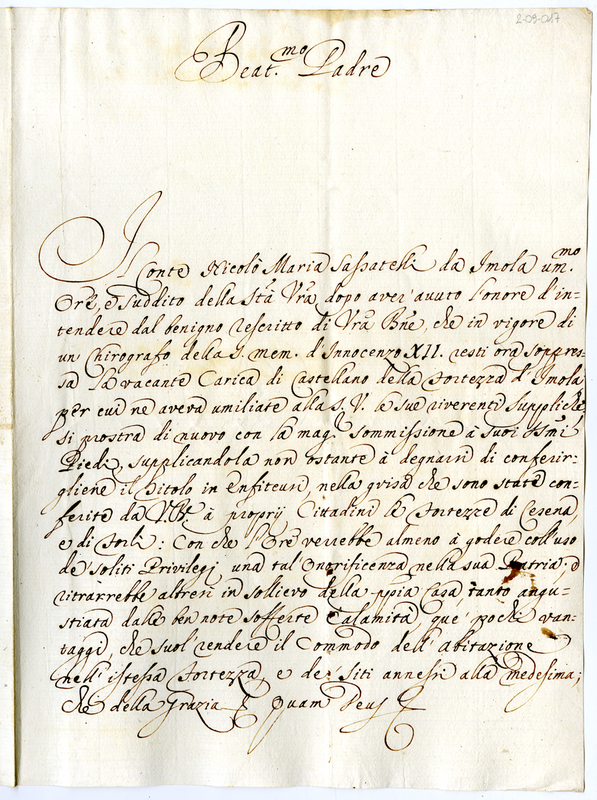 2-09-017
Beat.mo Padre
Il Conte Nicolò Maria Sassatelli da Imola um.mo
Orẽ, e suddito della Stà Vrã, dopo aver'avuto l'onore d'in-
tendere dal benigno rescritto di Vrã Bñe, che in vigore di
un Chirografo della S. mem. d'Innocenzo XII. resti ora soppres-
sa la vacante Carica di Castellano della Fortezza d'Imola
per cui ne aveva umiliate alla S. V. le sue riverenti suppliche,
si prostra di nuovo con la mag.r sommissione à suoi Ssmi
Piedi, supplicandola non ostante à degnarsi di conferir-
gliene il titolo in Enfiteusi, nella guisa che sono state con-
ferite da à proprij Cittadini le Fortezze di Cesena,
e di Forlì: Con che l'Orẽ verrebbe almeno à godere coll'uso
de' soliti Privilegj una tal'Onorificenza nella sua Patria, e
ritrarrebbe altresì in sollievo della ppia Casa, tanto angu-
stiata dalle ben note sofferte Calamità, que' pochi van-
taggi, che suol rendere il Commodo dell'Abitazione
nell'istessa Fortezza, e de' siti annessi alla medesima;
che della Grazia Quam Deus